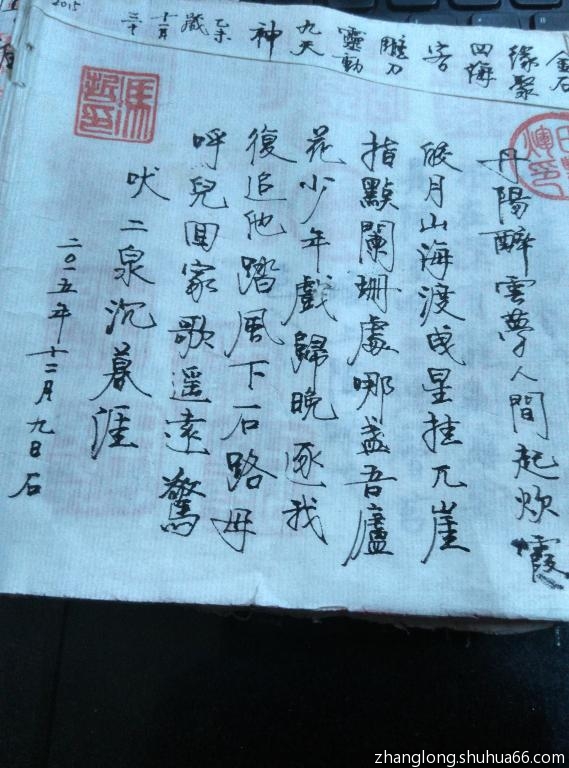 金石
缘聚
四海
客
雕刀
靈動
九天
神
歲
乙未
十一月
三十
2015
丹陽醉雲夢人間起炊霞
皎月山海渡戍星挂兀崖
指點闌珊處哪盏吾廬
花少年戲歸晚逐我
復追他踏風下石路毋
呼兒回家歌遥遠驚
吠二泉沉暮涯
二〇一五年十二月九日石
馮
印
zhanglong.shuhua66.com